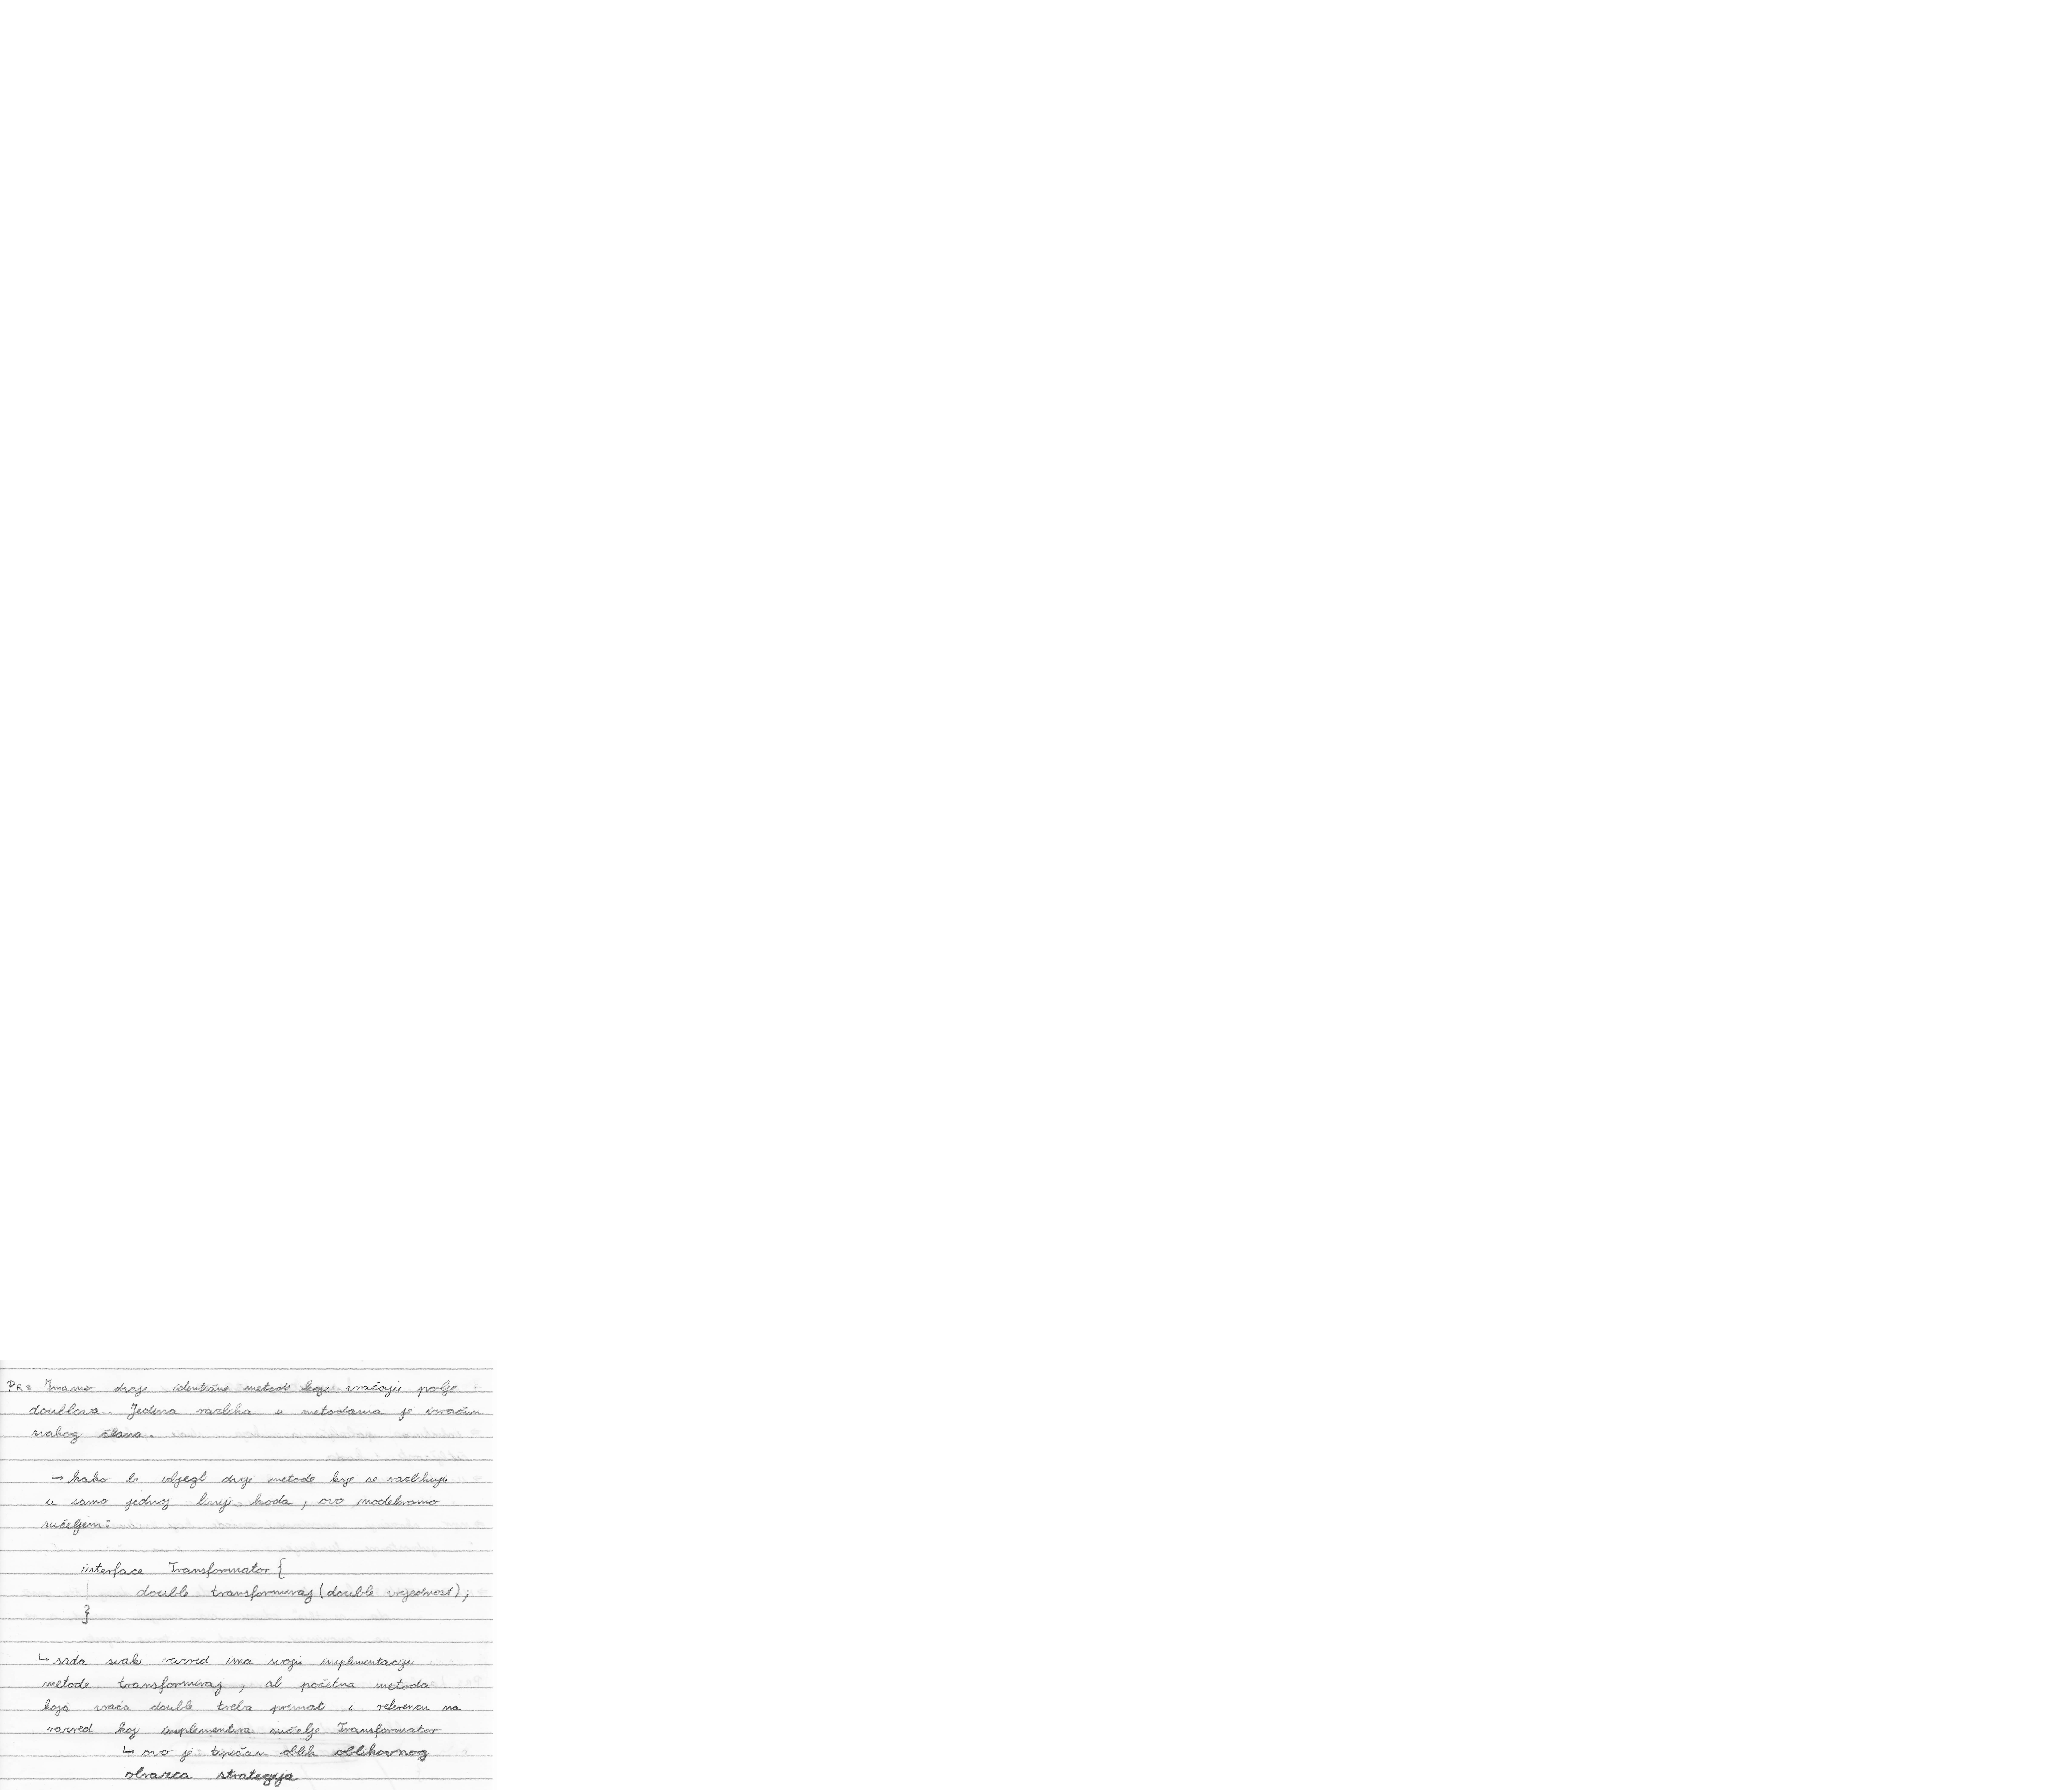 PR: Imamo dvije identične metode koje vraćaju polje
doublova. Jedina razlika u metodama je izračun
svakog člana.
↳ kako bi izbjegli dvije metode koje se razlikuju
u samo jednoj liniji koda, ovo modeliramo
sučeljem:
interface Transformator {
double transformiraj (double vrijednost);
}
↳ sada svaki razred ima svoju implementaciju
metode transformiraj, ali početna metoda
koja vraća double treba primati i referencu na
razred koji implementira sučelje Transformator
↳ ovo je tipičan oblik oblikovnog
obrazca strategija